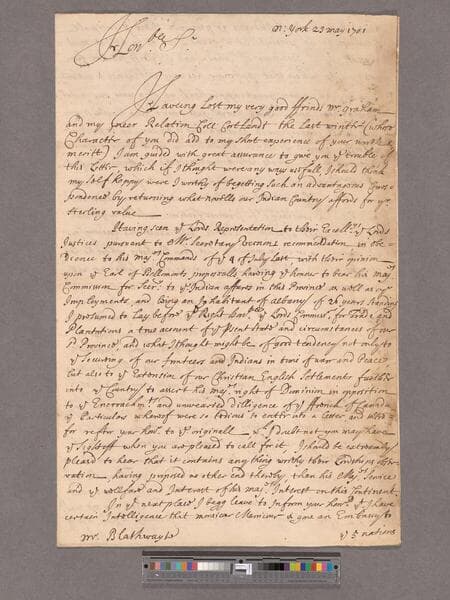 N: York 23 may 1701
Honble Sr.
Haveing Lost my very good ffrind Mr. Graham
and my neer Relation Coll Cortlandt the Last winter (whose
Character of you did add to my short experience of your
meritt) I am guided with great assurance to give you ye trouble of
this Letter which if I thought were any way usefull, I should think
my Self happy were I worthy of begetting such an advantageous Corres-
pondence by returning what novelle our Indian Country affords for yr.
sterling value
Haveing seen ye Lords Representation to their Excellcys ye Lords
Justices pursuant to Mr. Secretary Vernons recommendation in obe-
dience to his maj Commands of ye 4 of July last, with their opinion
upon ye Earl of Bellomonts proposalls haveing ye honour to bear his maj
Commission for Secry. to ye Indian affares in this Province as well as oyr
Imployments and being an Inhabitant of albany of 26 years standing
I presumed to Lay before ye Right honble ye Lords Commisrs for Trade and
Plantations a true account of ye psent State and circumstances of our
Province, and what I thought might be of good tendency not only to
ye Secureing of our frunteers and Indians in time of warr and Peace
but also to ye Extension of our Christian English Settlements further
into ye Country to assert his maj right of Dominion in opposition
to ye Encroachmts and unwearied Dilligence of ye ffrench of Canida
ye Particulars whereof were so tedious to enter into a Letter and
for reffer your honr. to ye originall wch I doubt not you may have
ye Sight off when you are pleased to call for it I should be extreamly
pleasd to hear that it contains any thing worthy their Lordships obser-
vation, having proposed no other end thereby, then his Maj. Service
and ye wellfare and Interest of his maj Interest on this Continent
In ye next place I begg leave to Inform your honr. yt I have
certain Intelligence that monsieur &amp; gone an Embassy to
mr. Blathwayte
ye 5 nations